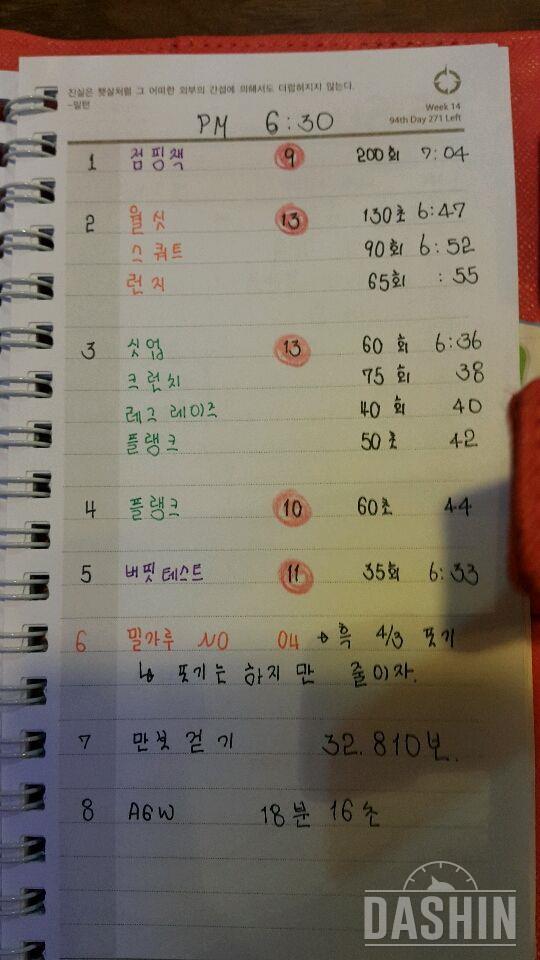 진실은 햇살처럼 그 어떠한 외부의 간섭에 의해서도 더럽혀지지 않는다.
-밀턴
Week 14
94th Day 271 Left
PM 6:30
1 점핑잭 9 200회 7:04
2 월싯 13 130초 6:47
스쿼트 90회 6:52
런지 65회 :55
3 싯업 13 60회 6:36
크런치 75회 38
레그레이즈 40회 40
플랭크 50초 42
4 플랭크 10 60초 44
5 버핏테스트 11 35회 6:33
6 밀가루 NO 04 → 흑 4/3 포기
↳ 포기는 하지만 줄이자.
7 만봇 걷기 32.810보.
8 A6W 18분 16초
DASHIN